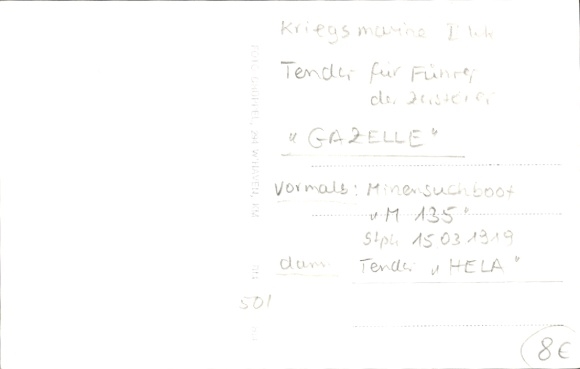 Kriegsmarine II
Tender für Führer
der Zerstörer
"GAZELLE"
vormals: Minensuchboot
"M 135"
Stpll 15 03 1919
dann Tender "HELA"
501
8€